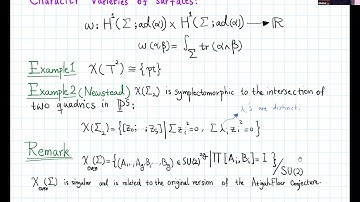 Character varieties of surfaces:
ω: H¹(Σ; ad(α)) × H¹(Σ; ad(α)) → ℝ
ω(α,β) = ∫_Σ tr(α∧β)
Example 1 χ(T²) ≅ {pt}
Example 2 (Newstead) χ(Σ₂) is symplectomorphic to the intersection of
two quadrics in ℙ⁵:
λᵢ's are distinct.
χ(Σ₂) = {[z₀:…:z₅] | Σ zᵢ² = 0, Σ λᵢ zᵢ² = 0}
Remark χ_even(Σ) = {(A₁,…,A_g,B₁,…,B_g) ∈ SU(2)^{2g} | ∏[Aᵢ,Bᵢ] = I}/SU(2)
χ_even(Σ) is singular and is related to the original version of the Atiyah-Floer Conjecture.